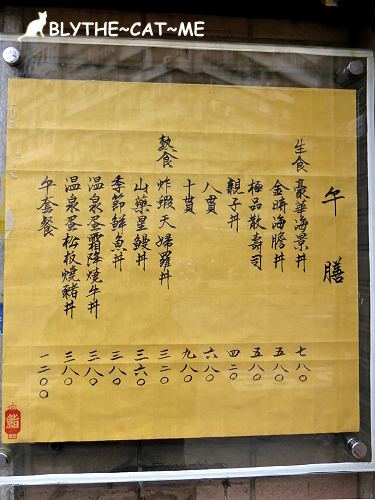 BLYTHE~CAT~ME
午膳
生食 豪華海景丼 七八〇
金晴海膽丼 五八〇
極品散壽司 五八〇
親子丼 四二〇
八貫 六八〇
十貫 九八〇
熟食 炸蝦天婦羅丼 三二〇
山藥星鰻丼 三六〇
季節鮮魚丼 三八〇
溫泉蛋霜降燒牛丼 三八〇
溫泉蛋松板燒豬丼 三八〇
午套餐 一二〇〇
鮨